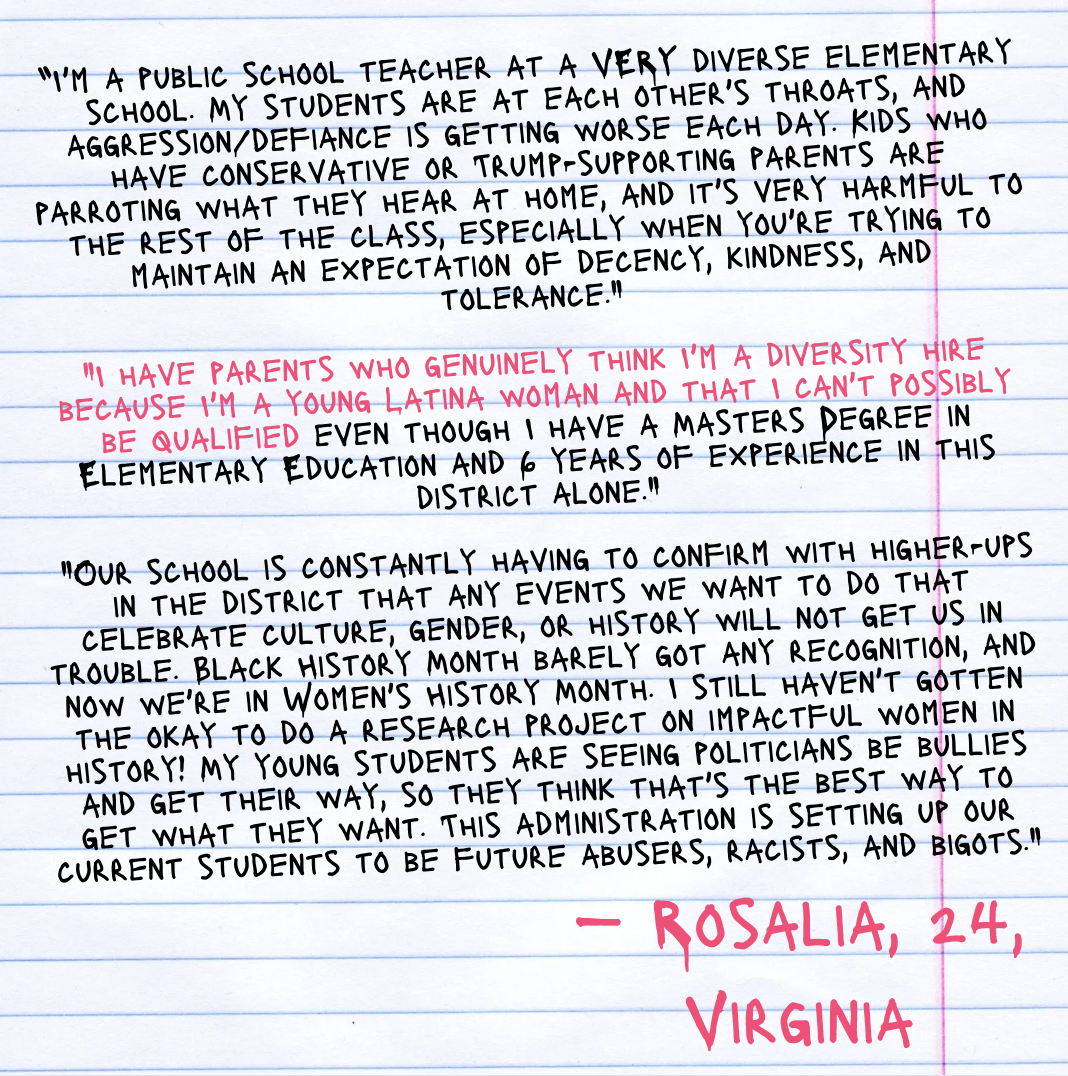 "I'M A PUBLIC SCHOOL TEACHER AT A VERY DIVERSE ELEMENTARY
SCHOOL. MY STUDENTS ARE AT EACH OTHER'S THROATS, AND
AGGRESSION/DEFIANCE IS GETTING WORSE EACH DAY. KIDS WHO
HAVE CONSERVATIVE OR TRUMP-SUPPORTING PARENTS ARE
PARROTING WHAT THEY HEAR AT HOME, AND IT'S VERY HARMFUL TO
THE REST OF THE CLASS, ESPECIALLY WHEN YOU'RE TRYING TO
MAINTAIN AN EXPECTATION OF DECENCY, KINDNESS, AND
TOLERANCE."
"I HAVE PARENTS WHO GENUINELY THINK I'M A DIVERSITY HIRE
BECAUSE I'M A YOUNG LATINA WOMAN AND THAT I CAN'T POSSIBLY
BE QUALIFIED EVEN THOUGH I HAVE A MASTERS DEGREE IN
ELEMENTARY EDUCATION AND 6 YEARS OF EXPERIENCE IN THIS
DISTRICT ALONE."
"OUR SCHOOL IS CONSTANTLY HAVING TO CONFIRM WITH HIGHER-UPS
IN THE DISTRICT THAT ANY EVENTS WE WANT TO DO THAT
CELEBRATE CULTURE, GENDER, OR HISTORY WILL NOT GET US IN
TROUBLE. BLACK HISTORY MONTH BARELY GOT ANY RECOGNITION, AND
NOW WE'RE IN WOMEN'S HISTORY MONTH. I STILL HAVEN'T GOTTEN
THE OKAY TO DO A RESEARCH PROJECT ON IMPACTFUL WOMEN IN
HISTORY! MY YOUNG STUDENTS ARE SEEING POLITICIANS BE BULLIES
AND GET THEIR WAY, SO THEY THINK THAT'S THE BEST WAY TO
GET WHAT THEY WANT. THIS ADMINISTRATION IS SETTING UP OUR
CURRENT STUDENTS TO BE FUTURE ABUSERS, RACISTS, AND BIGOTS."
— ROSALIA, 24,
VIRGINIA